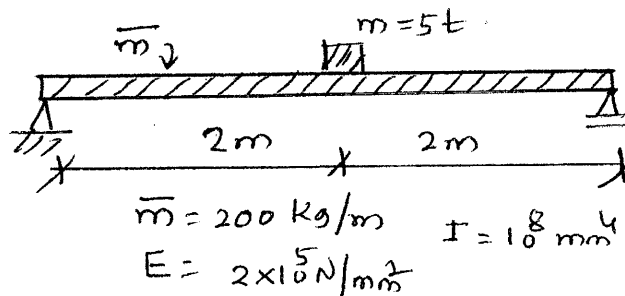 m̅ m=5t
2m 2m
m̅ = 200 kg/m I = 10⁸ mm⁴
E = 2×10⁵ N/mm²